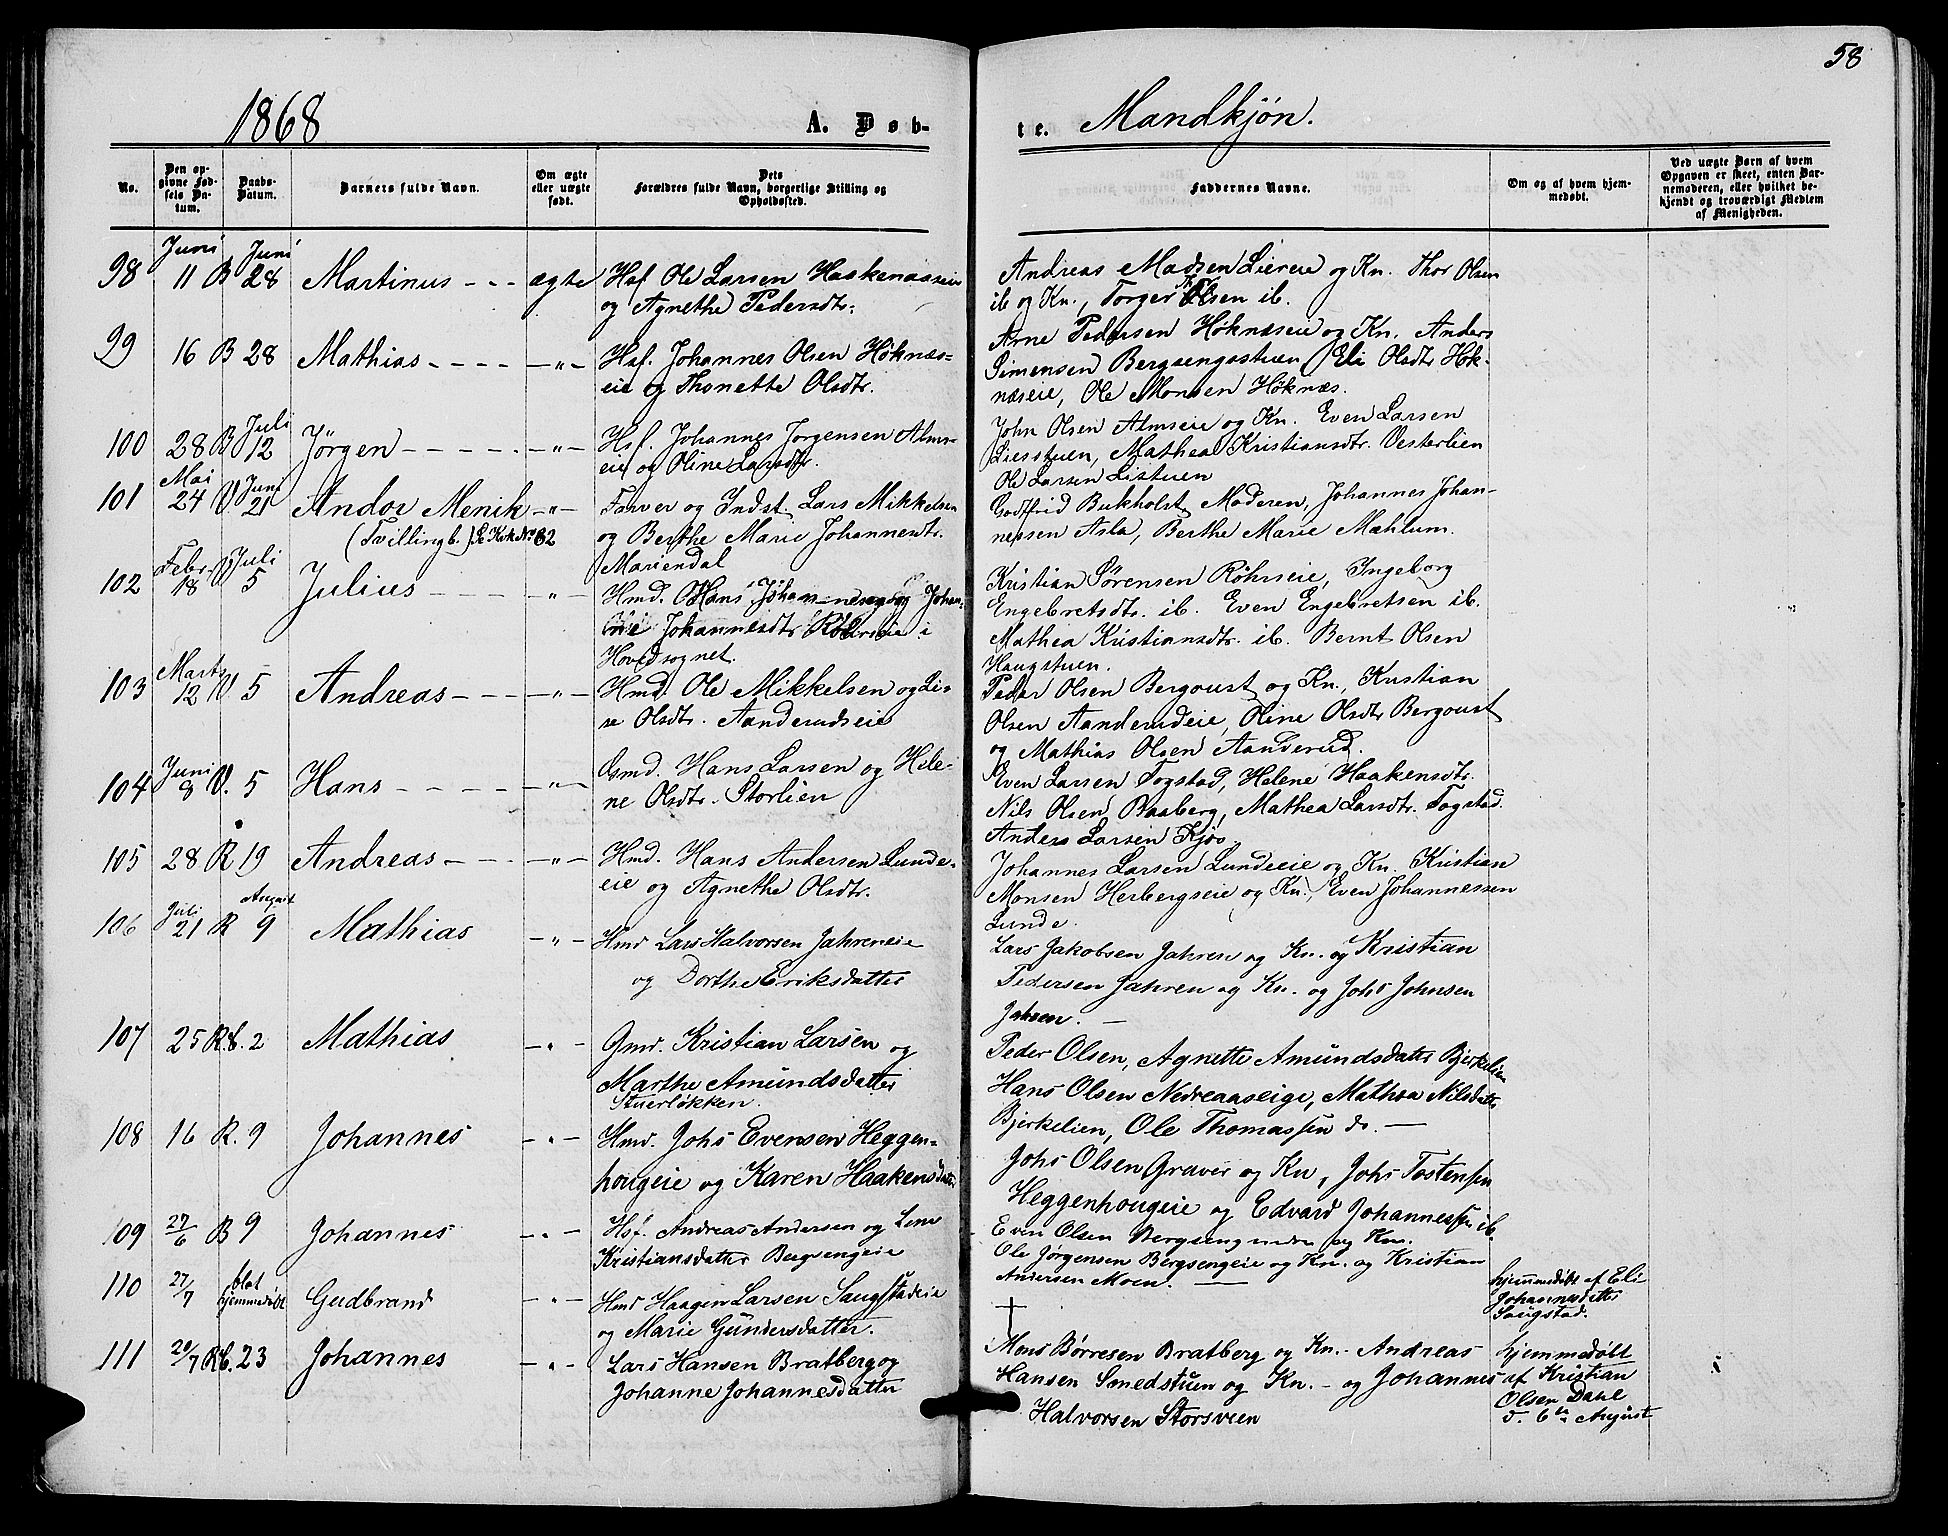 58
1868 A. Døb-
te. Mandkjøn.
No.
Den op-
givne Fød-
sels Da-
tum.
Daabs-
Datum.
Barnets fulde Navn.
Om ægte
eller uægte
født.
Dets
Forældres fulde Navn, borgerlige Stilling og
Opholdssted.
Faddernes Navne.
Om og af hvem hjem-
medøbt.
Ved uægte Børn af hvem
Opgaven er skeet, enten Bar-
nemoderen, eller hvilket be-
kjendt og troværdigt Medlem
af Menigheden.
Juni Juni
98 11 B 28 Martinus - - - ægte Hsf Ole Larsen Haakenaaseie
og Agnethe Pedersdtr.
Andreas Madsen Liereie og Kn. Thor Olsen
ib og Kn., Torger Olsen ib.
99 16 B 28 Mathias - - - - -"- Hsf. Johannes Olsen Höknæs-
eie og Thonette Olsdtr.
Arne Pedersen Höknæseie og Kn. Anders
Simensen Bergsengsstuen, Eli Olsdtr Hök-
næseie, Ole Monsen Höknæs.
Juli
100 28 B 12 Jörgen - - - - - -"- Hsf. Johannes Jorgensen Alms-
eie og Oline Larsdtr.
John Olsen Almseie og Kn. Even Larsen
Liesstuen, Mathea Kristiansdtr. Vesterlien
Ole Larsen Listuen
Mai Juni
101 24 V. 21 Andor Menik -"- Farver og Indst. Lars Mikkelsen
(Tvillingb.) Se Kvk. No 82 og Berthe Marie Johannesdtr.
Mariendal
Godtfrid Bukholst, Moderen, Johannes Johan-
nessen Asla, Berthe Marie Mæhlum.
Febr. Juli
102 18 V 5 Julius - - - - -"- Hmd. Hans Johannesen og Johan-
ne Johannesdtr Röhrseie i
Hovedsognet.
Kristian Sörensen Röhrseie, Ingeborg
Engebretsdtr. ib. Even Engebretsen ib.
Mathea Kristiansdtr. ib. Bernt Olsen
Haugstuen.
Marts
103 12 V. 5 Andreas - - - -"- Hmd. Ole Mikkelsen og Li-
se Olsdtr. Aanderudseie
Peder Olsen Bergoust og Kn., Kristian
Olsen Aanderudeie, Oline Olsdtr Bergoust
og Mathias Olsen Aanderud.
Juni
104 8 V. 5 Hans - - - - - -"- Gmd. Hans Larsen og Hele-
ne Olsdtr. Storlien
Even Larsen Togstad, Helene Haakensdtr.
Nils Olsen Baaberg, Mathea Larsdtr. Togstad
Anders Larsen Kjos.
105 28 R 19 Andreas - - - -"- Hmd. Hans Andersen Lunde-
eie og Agnethe Olsdtr.
Johannes Larsen Lundeeie og Kn. Kristian
Monsen Herbergseie og Kn., Even Johannessen
Lunde.
Juli August
106 21 R 9 Mathias -"- Hmd Lars Halvorsen Jahreneie
og Dorthe Eriksdatter
Lars Jakobsen Jahren og Kn. og Kristian
Pedersen Jahren og Kn. og Johs Johnsen
Jahren. -
107 25 R.C. 2 Mathias -"- Gmd. Kristian Larsen og
Marthe Amundsdatter
Stuerlökken.
Peder Olsen, Agnette Amundsdatter Bjerkelien
Hans Olsen Nedreaaseige, Mathea Nilsdatter
Bjerkelien, Ole Thomassen do. -
108 16 R. 9 Johannes -"- Hmd. Johs Evensen Heggen-
hougeie og Karen Haakensdatter
Johs Olsen Graver og Kn, Johs Tostensen
Heggenhougeie og Edvard Johannessen ib.
109 27/6 B 9 Johannes -"- Hsf. Andreas Andersen og Lene
Kristiansdatter Bergsengeie
Even Olsen Bergseng nedre og Kn.
Ole Jørgensen Bergsengeie og Kn. og Kristian
Andersen Moen. -
110 27/7 blot hjemmedøbt Gudbrand -"- Hmd Haagen Larsen Saugstadeie
og Marie Gundersdatter.
†
hjemmedøbt af Eli
Johannesdatter
Saugstad.
111 20/7 R.C. 23 Johannes -"- Lars Hansen Bratberg og
Johanne Johannesdatter
Mons Børresen Bratberg og Kn. - Andreas
Hansen Smedstuen og Kn. - og Johannes
Halvorsen Storsveen
hjemmedøbt
af Kristian
Olsen Dahl
d. 6te August